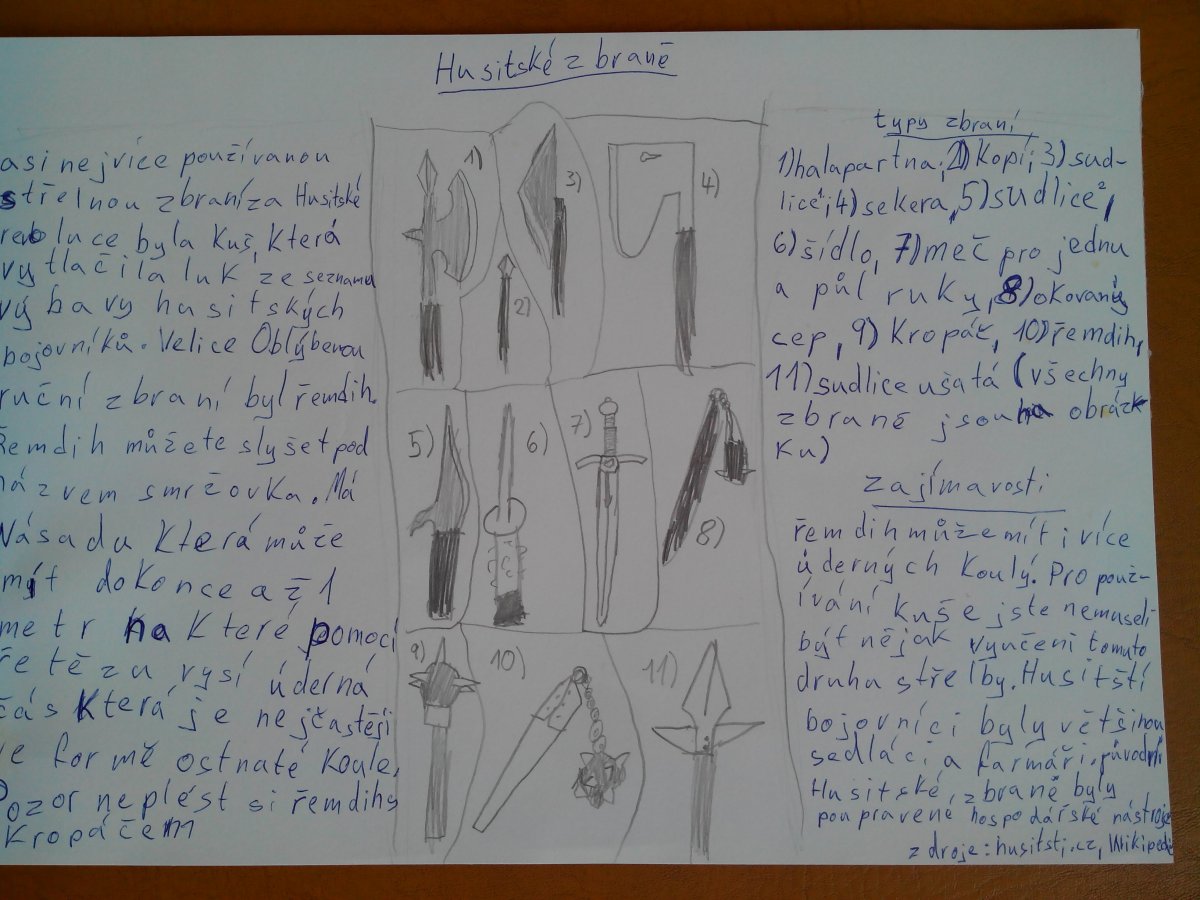 Husitské zbraně
asi nejvíce používanou
střelnou zbraní za Husitské
revoluce byla Kuš, Která
vytlačila luk ze seznamu
výbavy husitských
bojovníků. Velice Oblýbenou
ruční zbraní byl řemdih.
Řemdih můžete slyšet pod
názvem smržovka. Má
Násadu Která může
mít dokonce až 1
metr na Které pomocí
řetězu vysí úderná
čás Která je nejčastěji
ve formě ostnaté Koule.
Pozor neplést si řemdih s
Kropáčem
1)
2)
3)
4)
5)
6)
7)
8)
9)
10)
11)
typy zbraní
1) halapartna; 2) Kopí; 3) sud-
lice¹; 4) sekera, 5) sudlice²,
6) šídlo, 7) meč pro jednu
a půl ruky, 8) okovaný
cep, 9) Kropáč, 10) řemdih,
11) sudlice ušatá (všechny
zbraně jsou na obráz-
Ku)
Zajímavosti
řemdih může mít i více
úderných Koulý. Pro použ-
ívání Kuše jste nemuseli
být nějak vyučeni tomuto
druhu střelby. Husitští
bojovníci byly většinou
sedláci a farmáři. původní
Husitské, zbraně byly
poupravené hospodářské nástroje
zdroje: husitstj.cz, Wikipedi